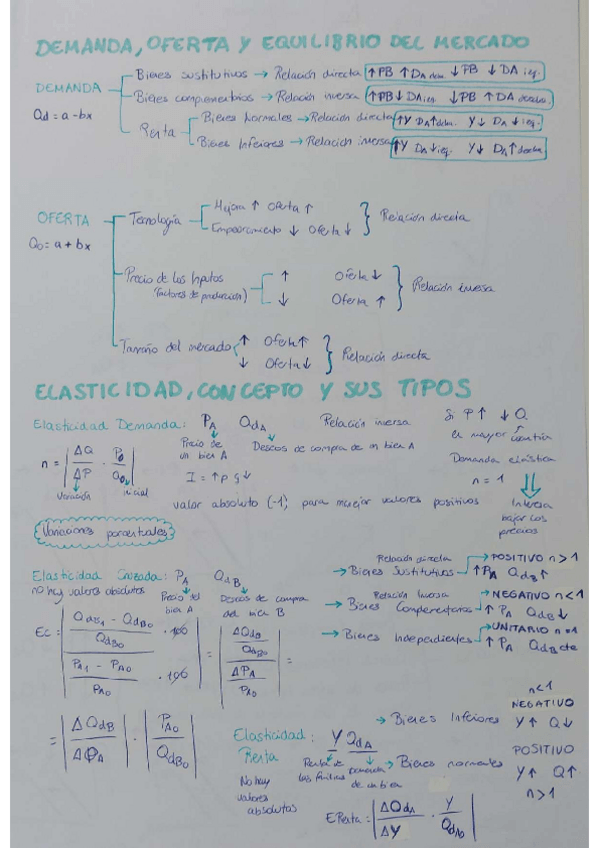 DEMANDA, OFERTA Y EQUILIBRIO DEL MERCADO
Bienes sustitutivos → Relación directa ↑PB ↑DA dcha. ↓PB ↓DA izq.
DEMANDA
Bienes complementarios → Relación inversa ↑PB ↓DA izq. ↓PB ↑DA decha.
Qd = a - bx
Renta
Bienes Normales → Relación directa ↑Y DA↑dcha. Y↓ DA↓izq.
Bienes Inferiores → Relación inversa ↑Y DA↓izq. Y↓ DA↑decha
OFERTA
Tecnología
Mejora ↑ Oferta ↑
Empeoramiento ↓ Oferta ↓
Relación directa
Qo = a + bx
Precio de los Inputos
(factores de producción)
↑ Oferta ↓
↓ Oferta ↑
Relación inversa
Tamaño del mercado
↑ Oferta ↑
↓ Oferta ↓
Relación directa
ELASTICIDAD, CONCEPTO Y SUS TIPOS
Elasticidad Demanda: PA QdA Relación inversa
Precio de un bien A
Deseos de compra de un bien A
Si P↑ ↓Q
en mayor cuantía
Demanda elástica
n = 1
Interesa bajar los precios
n = | ΔQ / ΔP · P0 / Q0 |
Variación inicial
I = ↑P Q↓
valor absoluto (-1) para manejar valores positivos
Variaciones porcentuales
Elasticidad Cruzada: PA QdB
no hay valores absolutos
Precio del bien A
Deseos de compra del bien B
Relación directa
→ Bienes Sustitutivos → POSITIVO n > 1 ↑PA QdB↑
Relación Inversa
→ Bienes Complementarios → NEGATIVO n < 1 ↑PA QdB↓
→ Bienes Independientes → UNITARIO n = 1 ↑PA QdB cte
Ec = | QdB1 - QdB0 / QdB0 · 100 / PA1 - PA0 / PA0 · 100 | = | ΔQdB / QdB0 / ΔPA / PA0 | =
= | ΔQdB / ΔPA | · | PA0 / QdB0 |
Elasticidad: Y QdA
Renta
No hay valores absolutos
Renta de las familias
demanda de un bien
n<1
NEGATIVO
→ Bienes Inferiores Y↑ Q↓
POSITIVO
→ Bienes normales Y↑ Q↑
n>1
ERenta: | ΔQdA / ΔY · Y / QdA0 |